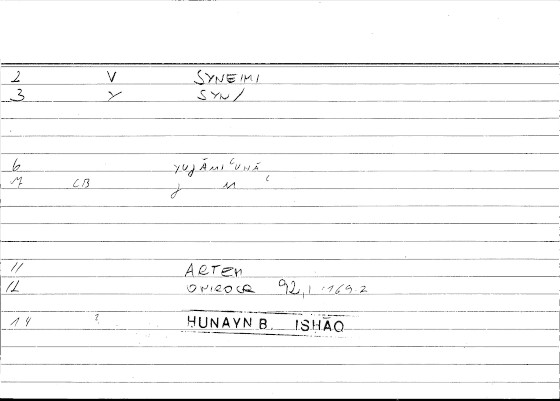 2 V SYNEIMI
3 Y SYN/
6 yuǧāmiʿunā
7 CB ǧ M ʿ
11 ARTEM
12 ONIROCR 92,1 169.2
14 ? HUNAYN B. ISHĀQ